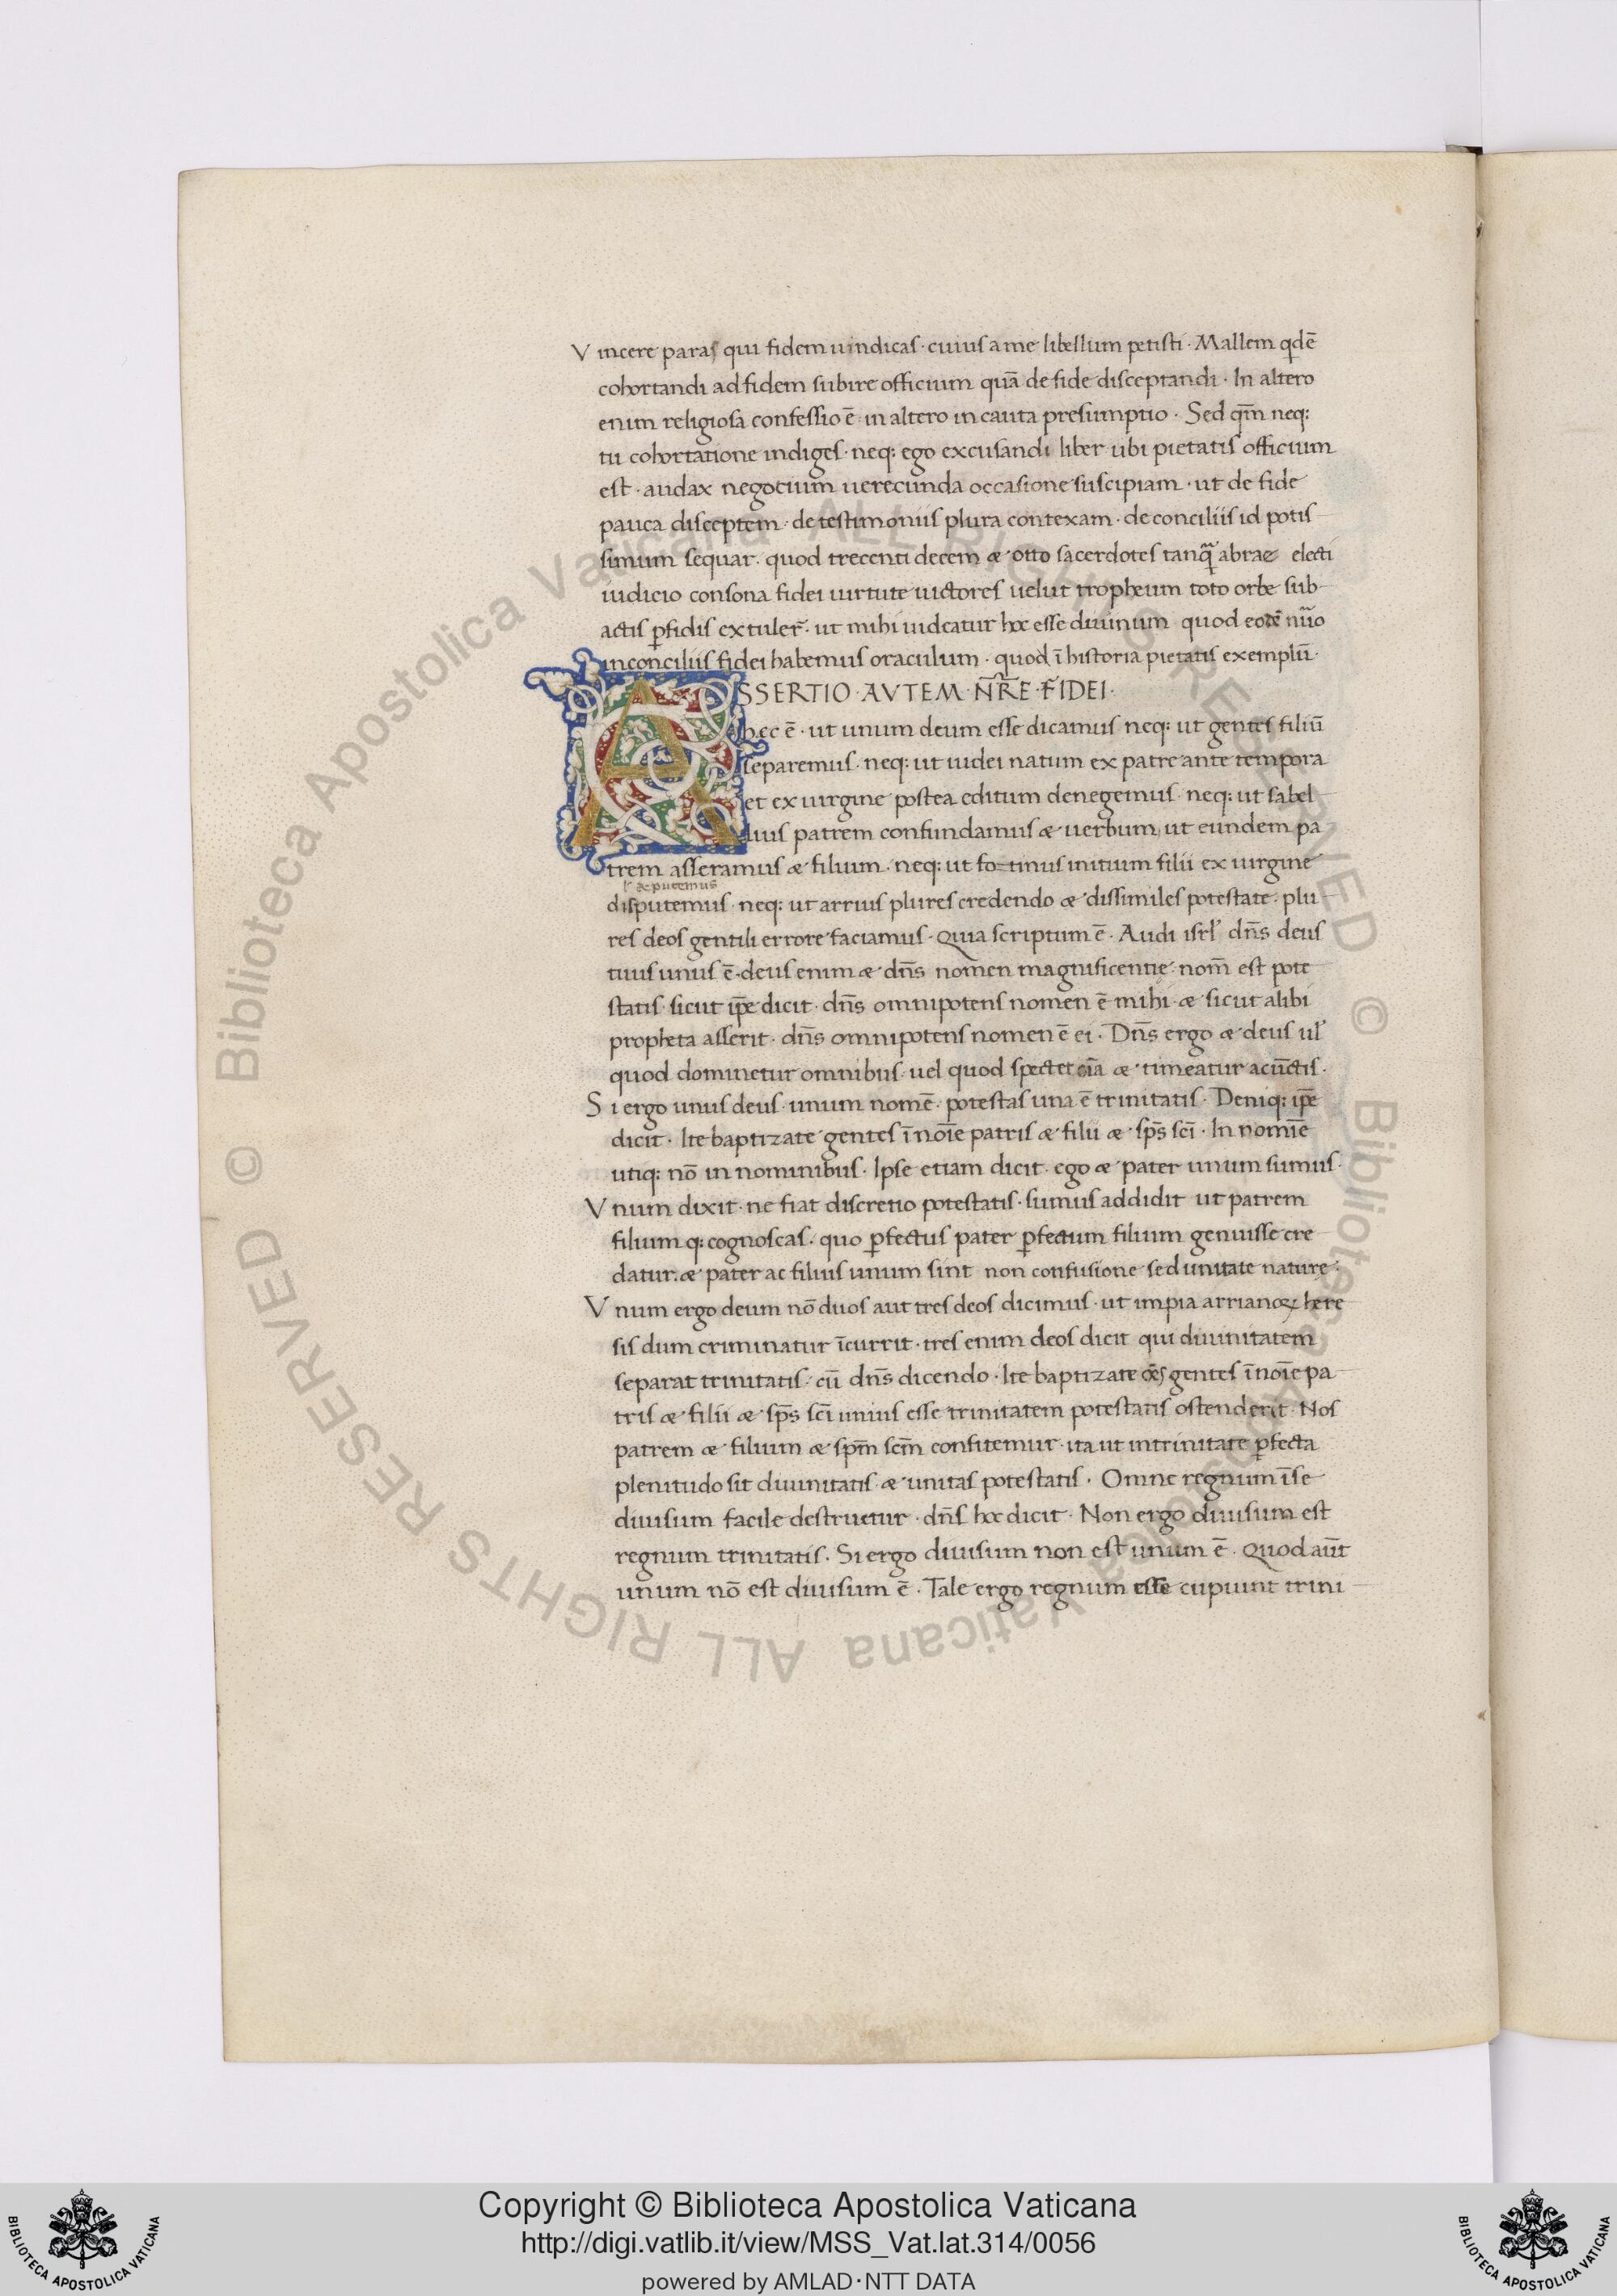 Vincere paras qui fidem uindicas · cuius a me libellum petisti · Mallem qdē
cohortandi ad fidem subire officium quā de fide disceptandi · In altero
enim religiosa confessio ē · in altero in cauta presumptio · Sed qm̄ neq:
tu cohortatione indiges · neq: ego excusandi liber ubi pietatis officium
est · audax negotium uerecunda occasione suscipiam · ut de fide
pauca disceptem · de testimoniis plura contexam · de conciliis id potis
simum sequar · quod trecenti decem & otto sacerdotes tanq̄ abrae electi
iudicio consona fidei uirtute uictores uelut tropheum toto orbe sub
actis ꝑfidis extuler̄ · ut mihi uideatur hoc esse diuinum quod eodē nūo
in conciliis fidei habemus oraculum · quod ī historia pietatis exemplū ·
ASSERTIO · AVTEM · N̄R̄E · FIDEI ·
hec ē · ut unum deum esse dicamus neq: ut gentes filiū
separemus · neq: ut iudei natum ex patre ante tempora
et ex uirgine postea editum denegemus · neq: ut sabel
lius patrem confundamus & uerbum, ut eundem pa
trem asseramus & filium · neq: ut fotinus initium filii ex uirgine
l deputemus
disputemus · neq: ut arrius plures credendo & dissimiles potestate · plu
res deos gentili errore faciamus · Quia scriptum ē · Audi isrl dn̄s deus
tuus unus ē · deus enim & dn̄s nomen magnificentie · nom̄ est pote
statis · sicut ip̄e dicit · dn̄s omnipotens nomen ē mihi · & sicut alibi
propheta asserit · dn̄s omnipotens nomen ē ei · Dn̄s ergo & deus ul
quod dominetur omnibus · uel quod spectet oīa & timeatur a cūctis ·
Si ergo unus deus · unum nomē · potestas una ē trinitatis · Deniq: ip̄e
dicit · Ite baptizate gentes ī noīe patris & filii & sp̄s sc̄i · In nomīe
utiq: nō in nominibus · Ipse etiam dicit · ego & pater unum sumus ·
Vnum dixit · ne fiat discretio potestatis · sumus addidit ut patrem
filium q: cognoscas · quo ꝑfectus pater ꝑfectum filium genuisse cre
datur · & pater ac filius unum sint non confusione sed unitate nature ·
Vnum ergo deum nō duos aut tres deos dicimus · ut impia arrianoꝝ here
sis dum criminatur īcurrit · tres enim deos dicit qui diuinitatem
separat trinitatis · cū dn̄s dicendo · Ite baptizate oēs gentes ī noīe pa
tris & filii & sp̄s sc̄i unius esse trinitatem potestatis ostenderit · Nos
patrem & filium & sp̄m sc̄m confitemur · ita ut in trinitate ꝑfecta
plenitudo sit diuinitatis & unitas potestatis · Omne regnum ī se
diuisum facile destruetur · dn̄s hoc dicit · Non ergo diuisum est
regnum trinitatis · Si ergo diuisum non est unum ē · Quod aūt
unum nō est diuisum ē · Tale ergo regnum esse cupiunt trini
© Biblioteca Apostolica Vaticana ALL RIGHTS RESERVED © Biblioteca Apostolica Vaticana ALL RIGHTS RESERVED
Copyright © Biblioteca Apostolica Vaticana
http://digi.vatlib.it/view/MSS_Vat.lat.314/0056
powered by AMLAD·NTT DATA
BIBLIOTECA APOSTOLICA VATICANA
BIBLIOTECA APOSTOLICA VATICANA